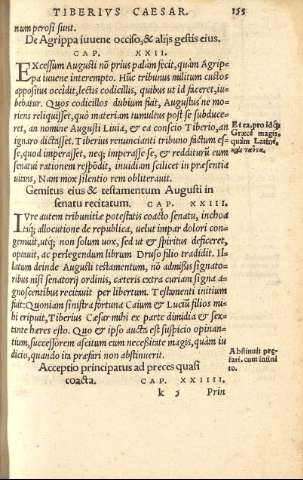 TIBERIVS CAESAR. 155
num perosi sunt.
De Agrippa iuuene occiso, & alijs gestis eius.
CAP. XXII.
EXcessum Augusti nō prius palàm fecit, quàm Agrip-
pa iuuene interempto. Hūc tribunus militum custos
appositus occidit, lectis codicillis, quibus ut id faceret, iu-
bebatur. Quos codicillos dubium fuit, Augustus'ne mo-
riens reliquisset, quò materiam tumultus post se subduce-
ret, an nomine Augusti Liuia, & ea conscio Tiberio, an
ignaro dictasset. Tiberius renuncianti tribuno factum es-
se, quod imperasset, neq; imperasse se, & redditurū eum
senatui rationem respōdit, inuidiam scilicet in præsentia
uitans, Nam mox silentio rem obliterauit.
Et ea, pro Id&
Græcè magis,
quàm Latinè,
Gemitus eius & testamentum Augusti in
senatu recitatum. CAP. XXIII.
IVre autem tribunitiæ potestatis coacto senatu, inchoa
taq; allocutione de republica, uelut impar dolori con-
gemuit, utq; non solum uox, sed ut & spiritus deficeret,
optauit, ac perlegendum librum Druso filio tradidit. Il-
latum deinde Augusti testamentum, nō admissis signato-
ribus nisi senatorij ordinis, cæteris extra curiam signa a-
gnoscentibus recitauit per libertum. Testamenti initium
fuit: Quoniam sinistra fortuna Caium & Luciū filios mi-
hi eripuit, Tiberius Cæsar mihi ex parte dimidia & sex-
tante hæres esto. Quo & ipso aucta est suspicio opinan-
tium, successorem ascitum eum necessitate magis, quàm iu
dicio, quando ita præfari non abstinuerit.
Abstinuit præ
fari, cum infini
to.
Acceptio principatus ad preces quasi
coacta. CAP. XXIIII.
k 2 Prin